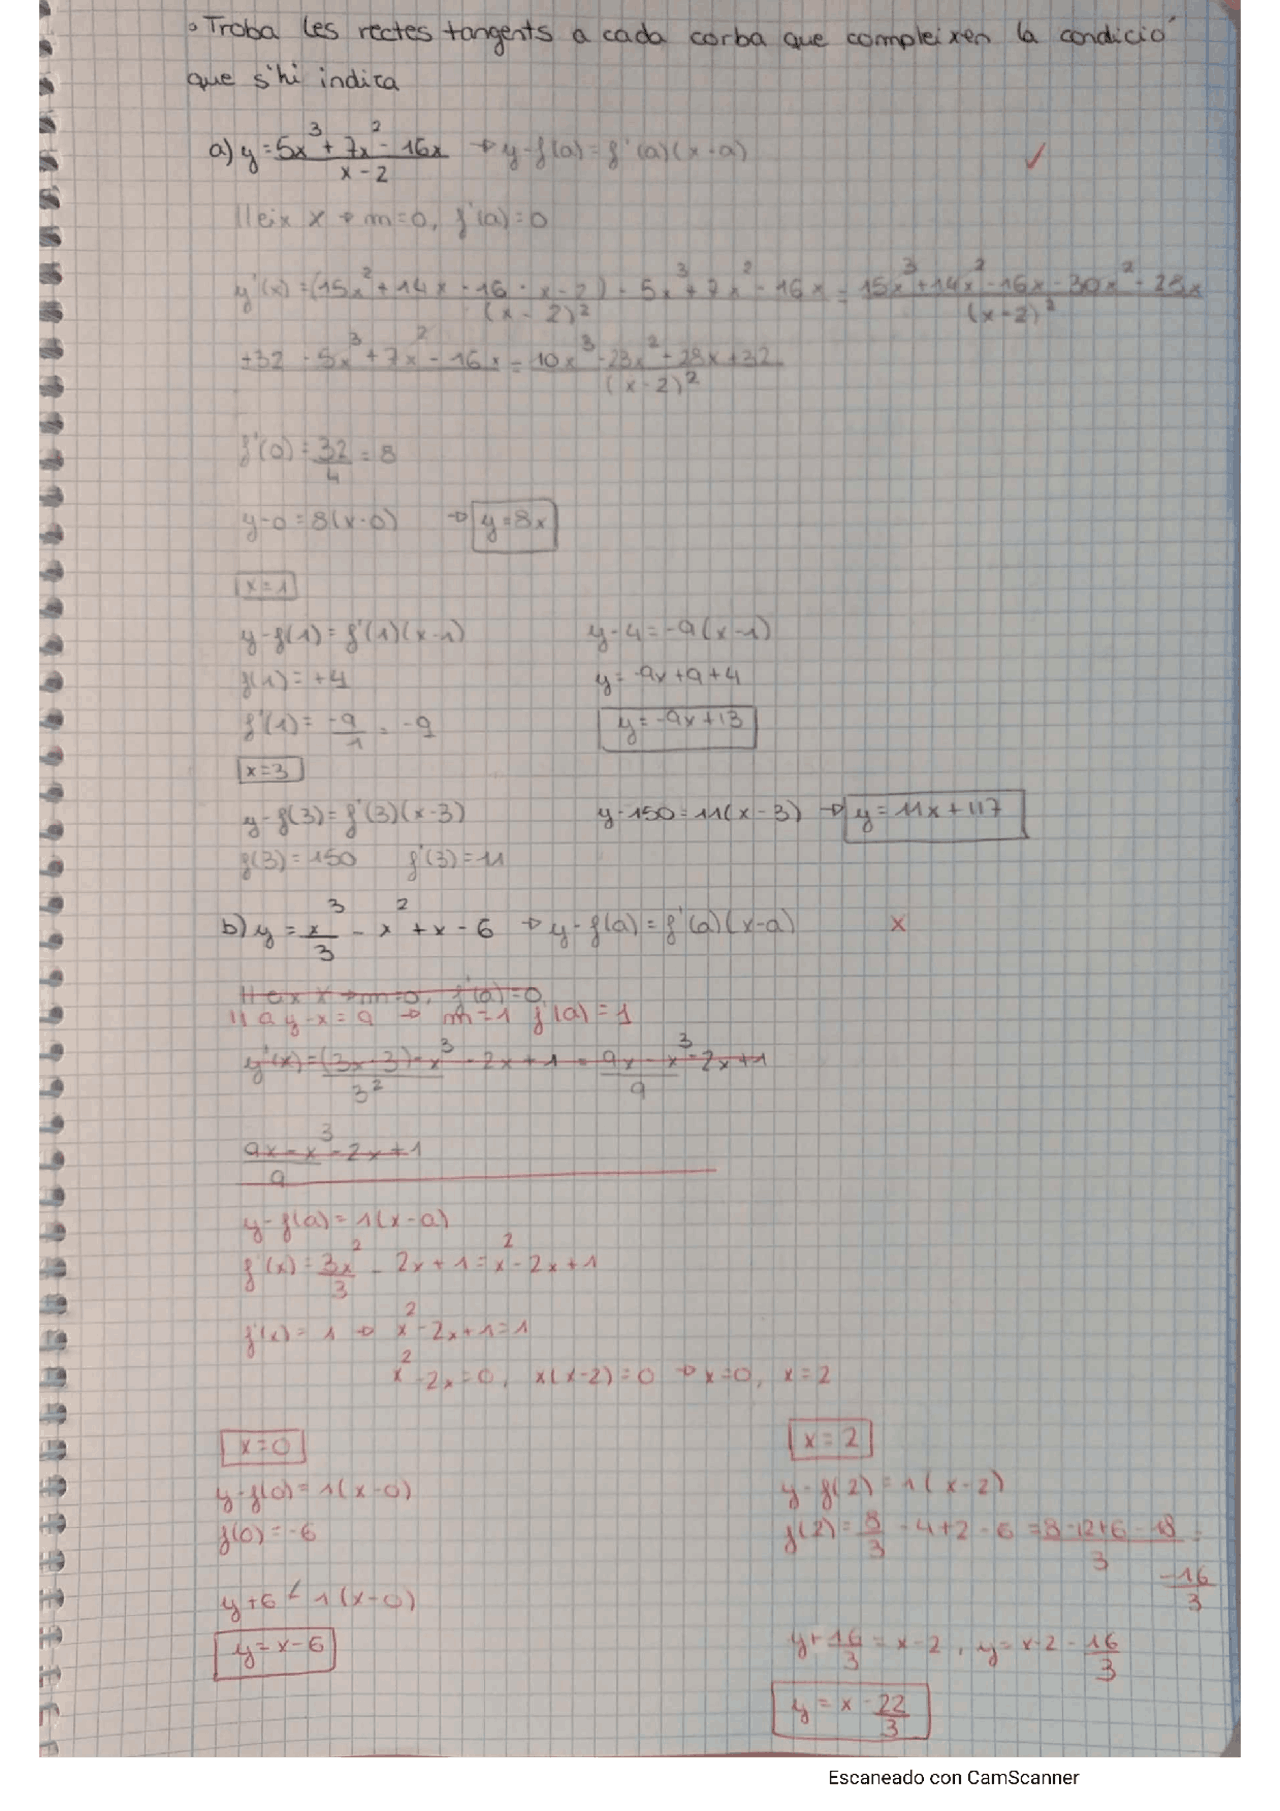 ∘Troba les rectes tangents a cada corba que compleixen la condició
que s'hi indica
a) y = (5x³ + 7x² - 16x)/(x - 2) → y - f(a) = f'(a)(x - a) ✓
// eix x → m = 0, f'(a) = 0
y'(x) = ((15x² + 14x - 16 · x - 2) - 5x³ + 7x² - 16x)/(x - 2)² = 15x³ + 14x² - 16x - 30x² - 28x
(x - 2)²
+32 - 5x³ + 7x² - 16x = (10x³ - 23x² + 28x + 32)/(x - 2)²
f'(0) = 32/4 = 8
y - 0 = 8(x - 0) → y = 8x
x = 1
y - f(1) = f'(1)(x - 1) y - 4 = -9(x - 1)
f(1) = +4 y = -9x + 9 + 4
f'(1) = -9/1 = -9 y = -9x + 13
x = 3
y - f(3) = f'(3)(x - 3) y - 150 = 11(x - 3) → y = 11x + 117
f(3) = 150 f'(3) = 11
b) y = x³/3 - x² + x - 6 → y - f(a) = f'(a)(x - a) x
// eix x → m = 0, f'(a) = 0
// a y - x = 9 → m = 1 f'(a) = 1
y'(x) = ((3x · 3) - x³)/3² - 2x + 1 = (9x - x³)/9 - 2x + 1
(9x - x³)/9 - 2x + 1
y - f(a) = 1(x - a)
f'(x) = 3x²/3 - 2x + 1 = x² - 2x + 1
f'(x) = 1 → x² - 2x + 1 = 1
x² - 2x = 0, x(x - 2) = 0 → x = 0, x = 2
x = 0 x = 2
y - f(0) = 1(x - 0) y - f(2) = 1(x - 2)
f(0) = -6 f(2) = 8/3 - 4 + 2 - 6 = (8 - 12 + 6 - 18)/3 =
-16/3
y + 6 = 1(x - 0)
y = x - 6 y + 16/3 = x - 2, y = x - 2 - 16/3
y = x - 22/3
Escaneado con CamScanner